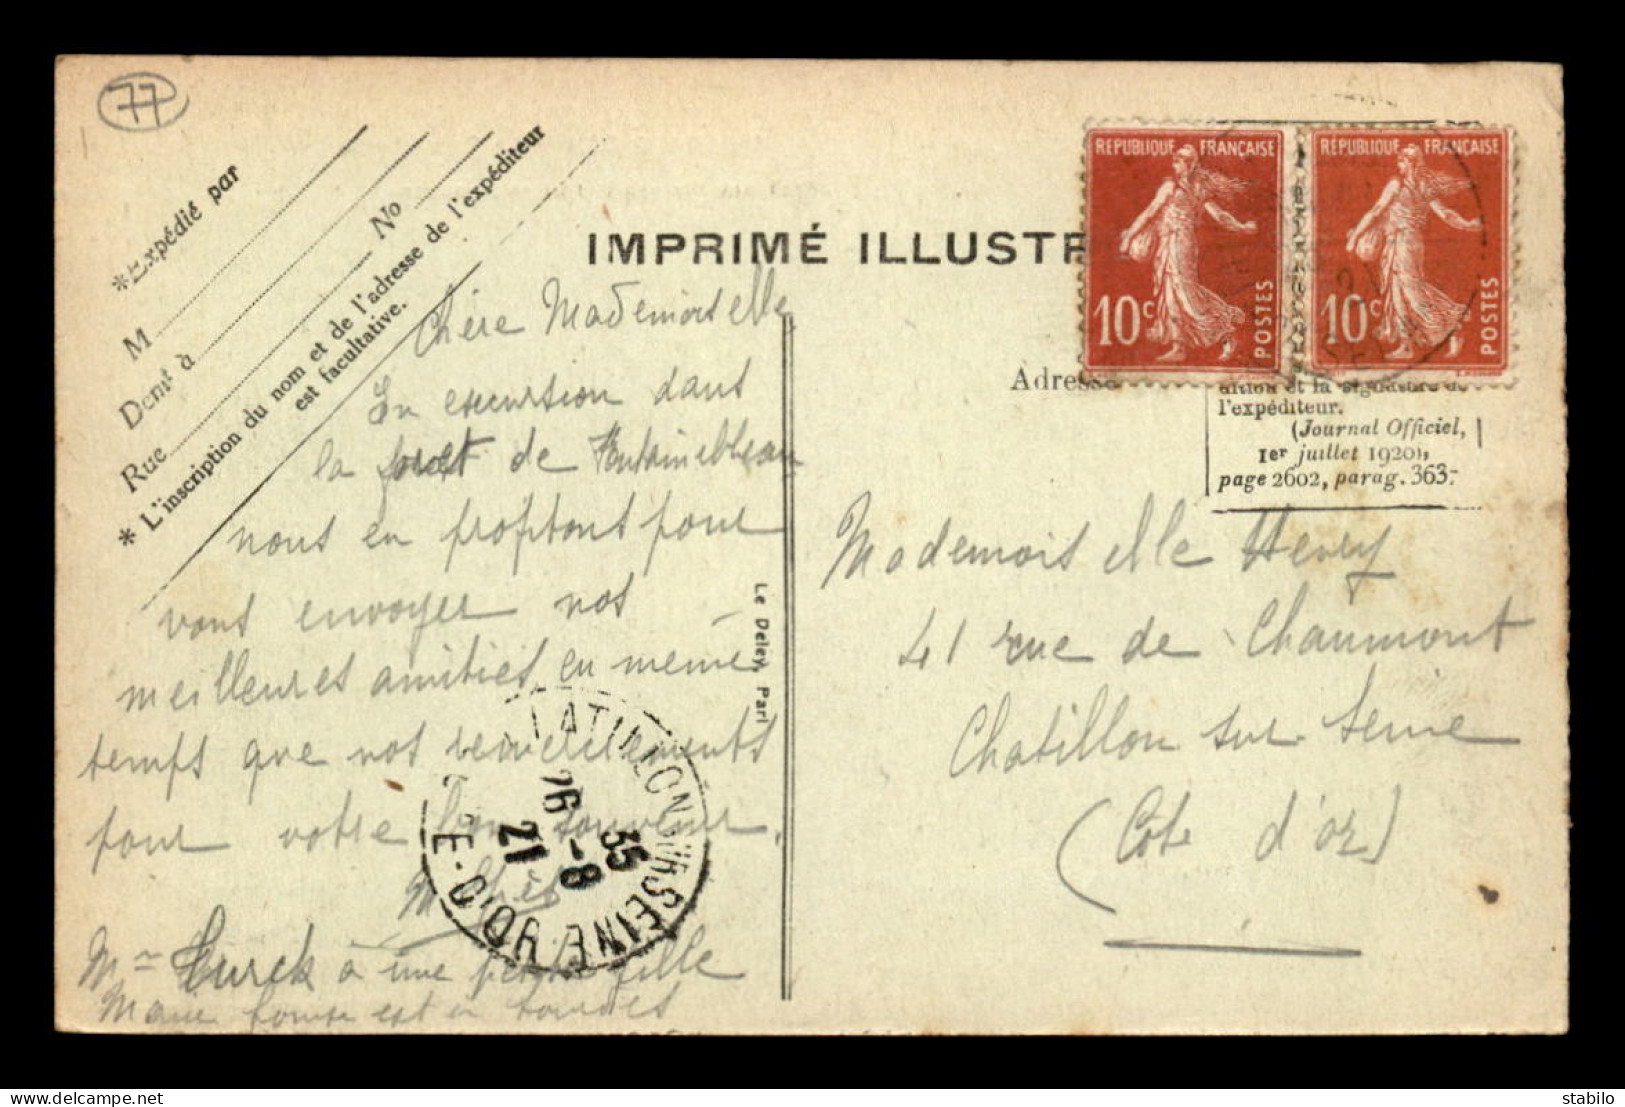 77
*Expédié par
M
Demt à
Rue
No
* L'inscription du nom et de l'adresse de l'expéditeur
est facultative.
IMPRIMÉ ILLUSTR
RÉPUBLIQUE FRANÇAISE
10c
POSTES
RÉPUBLIQUE FRANÇAISE
10c
POSTES
Adresse
dition et la signature de
l'expéditeur.
(Journal Officiel,
1er juillet 1920),
page 2602, parag. 363.
Chère Mademoiselle
En excursion dans
la foret de Fontainebleau
nous en profitons pour
vous envoyer nos
meilleures amitiés en meme
temps que nos remerciements
pour votre bon souvenir.
Mme à une petite fille
Marie est à
Le Deley, Pari
Mademoiselle Henry
41 rue de Chaumont
Chatillon sur Seine
(Côte d'or)
CHATILLON-SUR-SEINE
CÔTE-D'OR
35
26-8
21
delcampe.net
stabilo